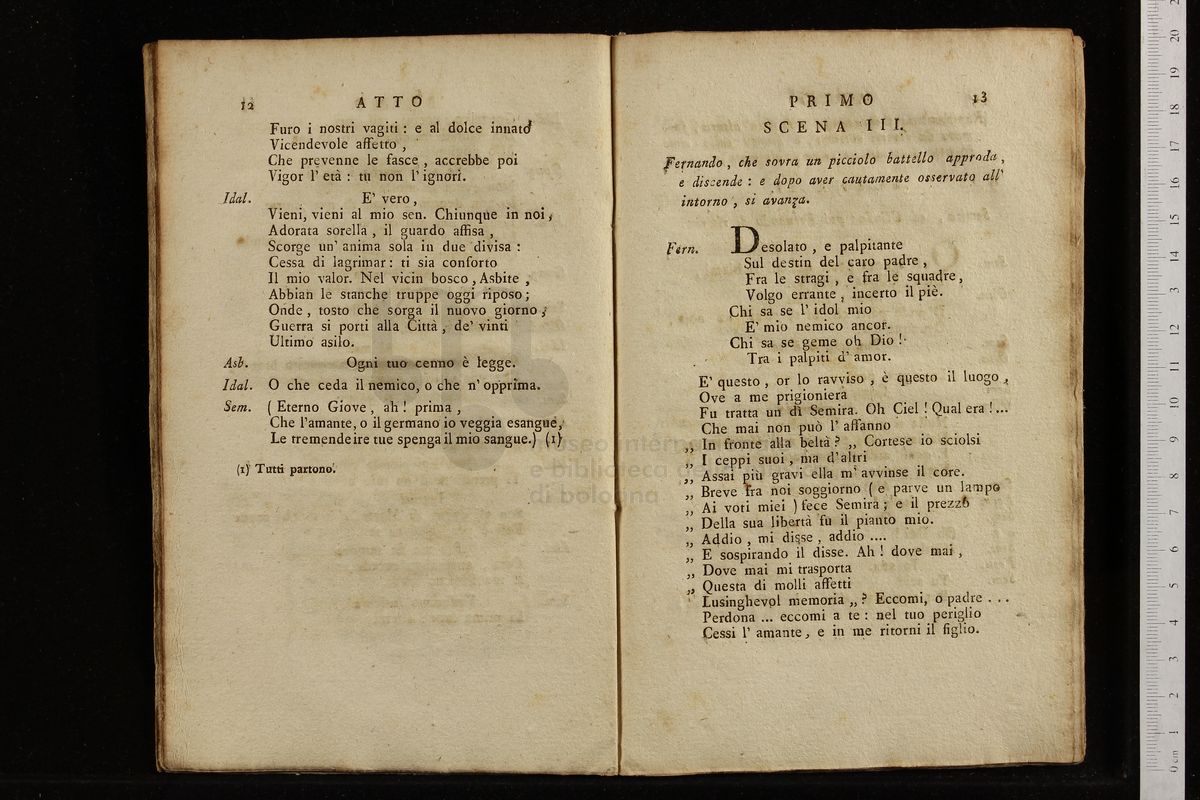 12 ATTO
Furo i nostri vagiti : e al dolce innato
Vicendevole affetto ,
Che prevenne le fasce , accrebbe poi
Vigor l' età : tu non l' ignori.
Idal. E' vero ,
Vieni, vieni al mio sen. Chiunque in noi ,
Adorata sorella , il guardo affisa ,
Scorge un' anima sola in due divisa :
Cessa di lagrimar : ti sia conforto
Il mio valor. Nel vicin bosco , Asbite ,
Abbian le stanche truppe oggi riposo ;
Onde , tosto che sorga il nuovo giorno ,
Guerra si porti alla Città , de' vinti
Ultimo asilo.
Asb. Ogni tuo cenno è legge.
Idal. O che ceda il nemico, o che n' opprima.
Sem. ( Eterno Giove , ah ! prima ,
Che l'amante, o il germano io veggia esangue,
Le tremende ire tue spenga il mio sangue.) (1)
(1) Tutti partono.
PRIMO 13
SCENA III.
Fernando , che sovra un picciolo battello approda ,
e discende : e dopo aver cautamente osservato all'
intorno , si avanza.
Fern. Desolato , e palpitante
Sul destin del caro padre ,
Fra le stragi , e fra le squadre ,
Volgo errante , incerto il piè.
Chi sa se l' idol mio
E' mio nemico ancor.
Chi sa se geme oh Dio !
Tra i palpiti d' amor.
E' questo , or lo ravviso , è questo il luogo ,
Ove a me prigioniera
Fu tratta un dì Semira. Oh Ciel ! Qual era !...
Che mai non può l' affanno
„ In fronte alla beltà ? „ Cortese io sciolsi
„ I ceppi suoi , ma d'altri
„ Assai più gravi ella m' avvinse il core.
„ Breve fra noi soggiorno ( e parve un lampo
„ Ai voti miei ) fece Semira ; e il prezzo
„ Della sua libertà fu il pianto mio.
„ Addio , mi disse , addio ....
„ E sospirando il disse. Ah ! dove mai ,
„ Dove mai mi trasporta
„ Questa di molli affetti
Lusinghevol memoria „ ? Eccomi, o padre . . .
Perdona ... eccomi a te : nel tuo periglio
Cessi l' amante , e in me ritorni il figlio.
museo internazionale
e biblioteca della musica
di bologna